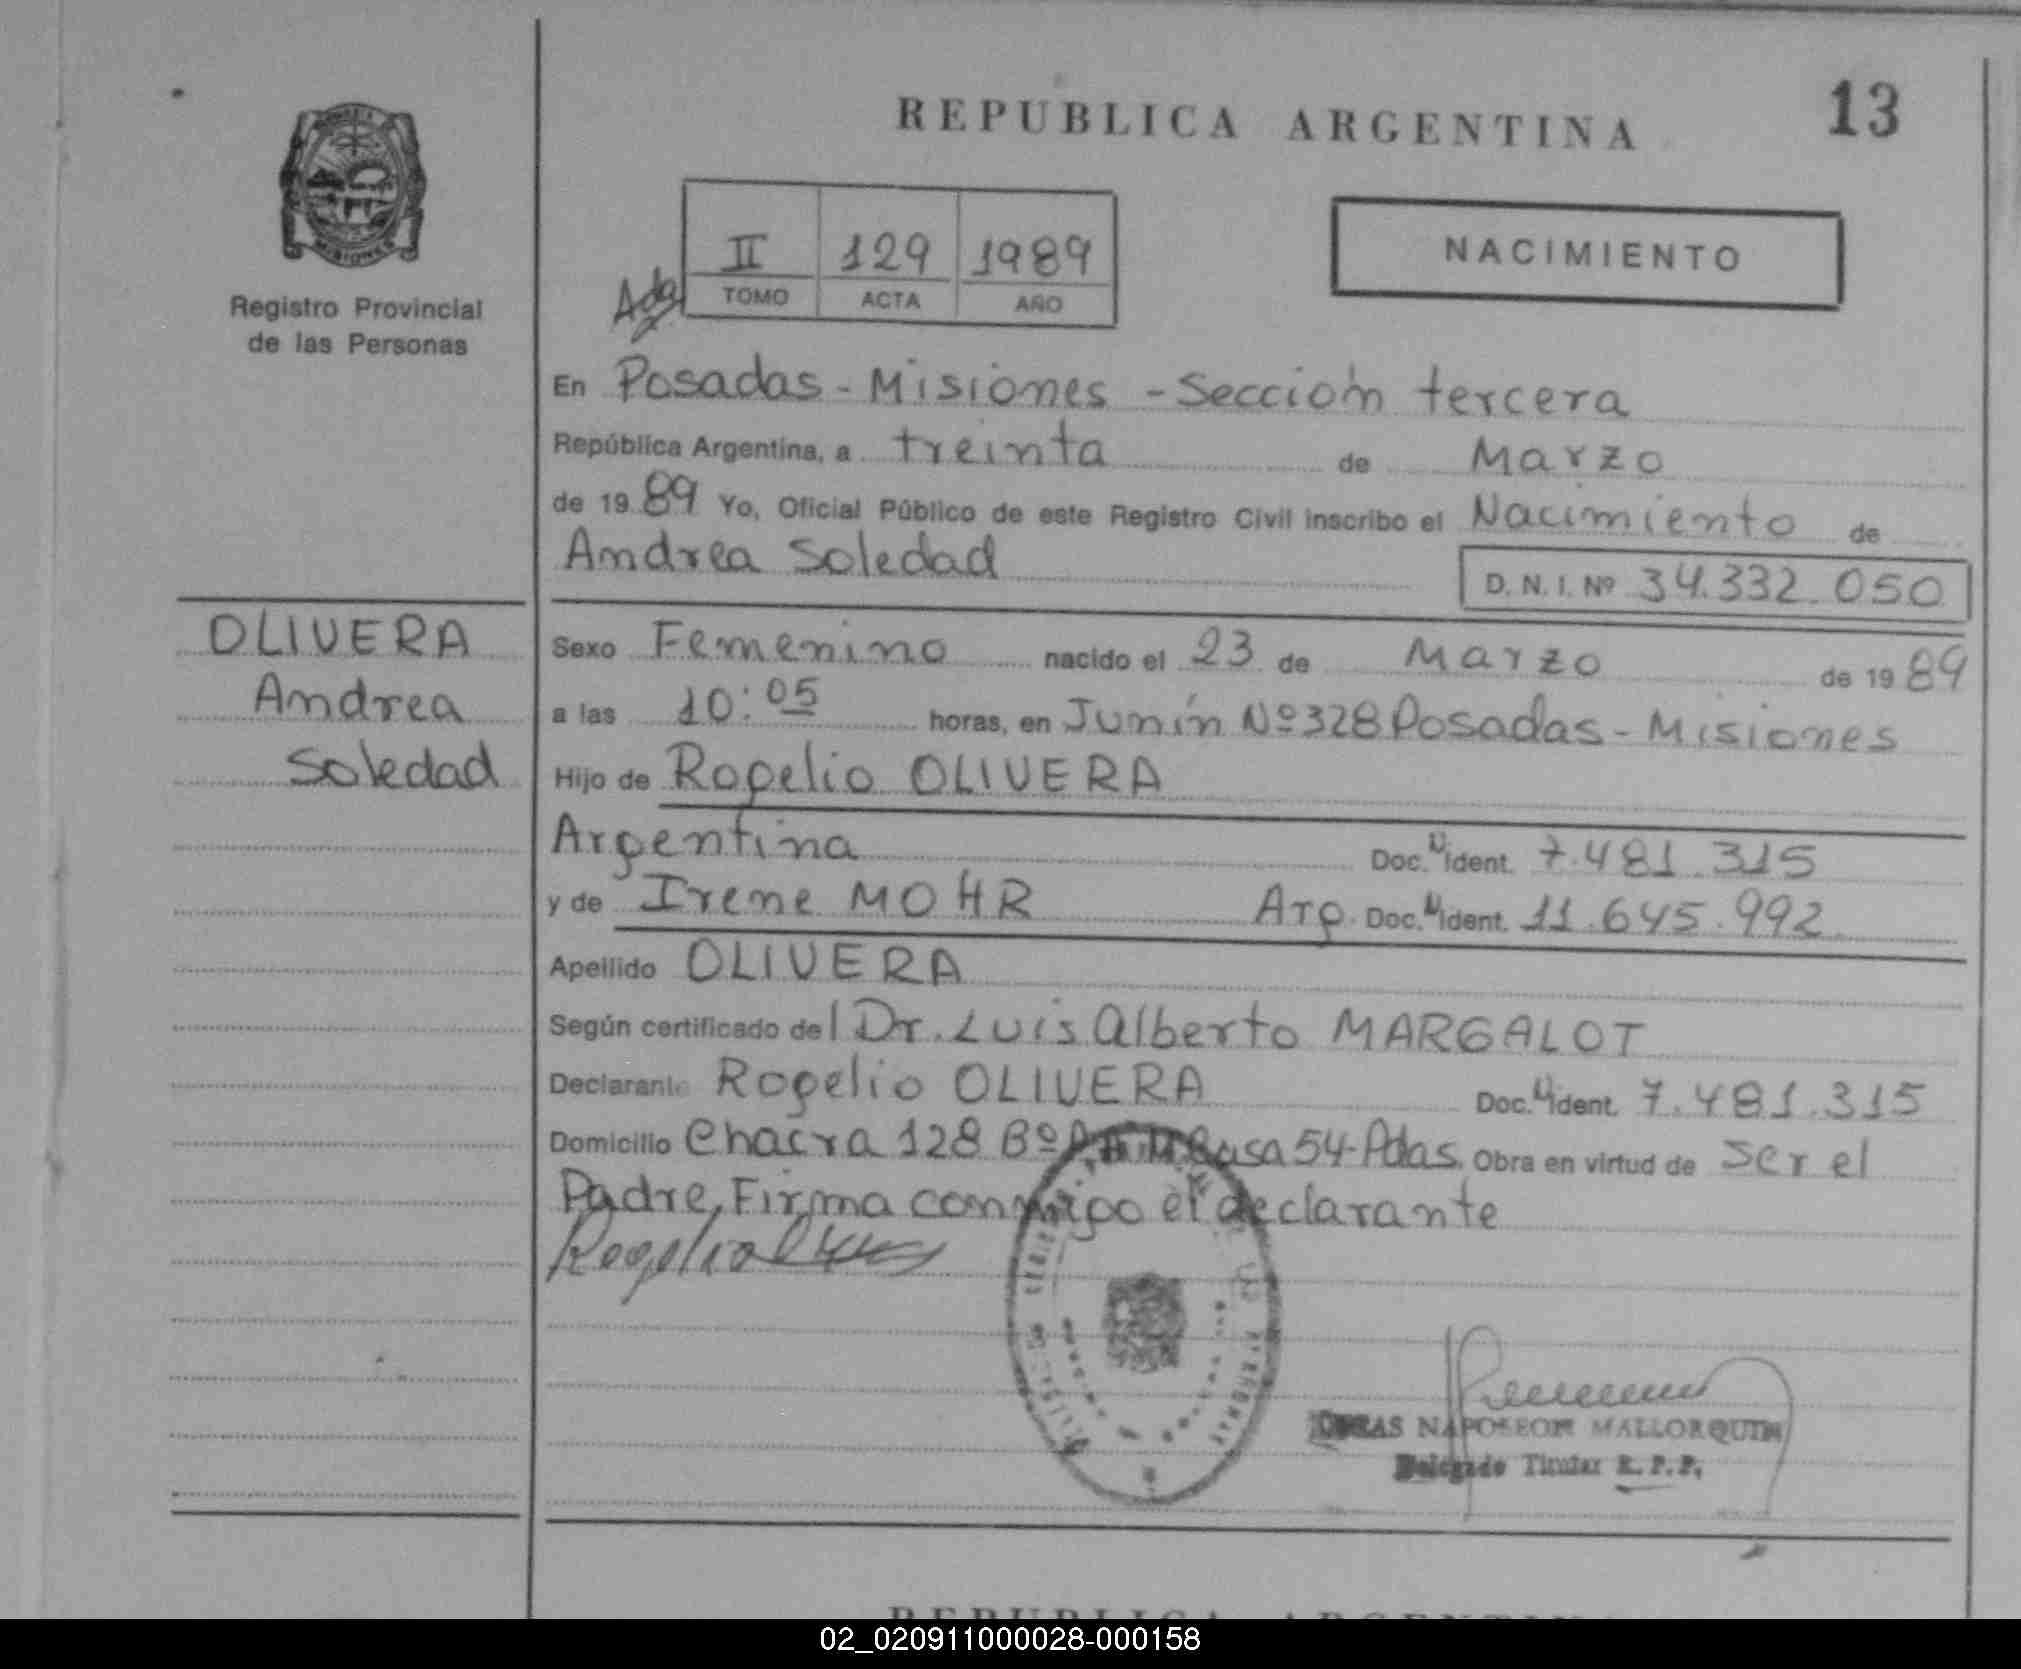 REPUBLICA ARGENTINA
13
Registro Provincial
de las Personas
II 129 1989
TOMO ACTA AÑO
NACIMIENTO
En Posadas - Misiones - Sección tercera
República Argentina, a treinta de Marzo
de 1989 Yo, Oficial Público de este Registro Civil inscribo el Nacimiento de
Andrea Soledad
D. N. I. Nº 34.332.050
OLIVERA
Andrea
Soledad
Sexo Femenino nacido el 23 de Marzo de 1989
a las 10:05 horas, en Junín Nº 328 Posadas - Misiones
Hijo de Rogelio OLIVERA
Argentina Doc. U ident. 7.481.315
y de Irene MOHR Arg. Doc. U ident. 11.645.992
Apellido OLIVERA
Según certificado del Dr. Luis Alberto MARGALOT
Declarante Rogelio OLIVERA Doc. U ident. 7.481.315
Domicilio Chacra 128 Bº Casa 54 - Pdas. Obra en virtud de ser el
Padre, Firma conmigo el declarante
NAPOLEON MALLORQUIN
Delegado Titular R. P. P.
REPUBLICA ARGENTINA
02_020911000028-000158